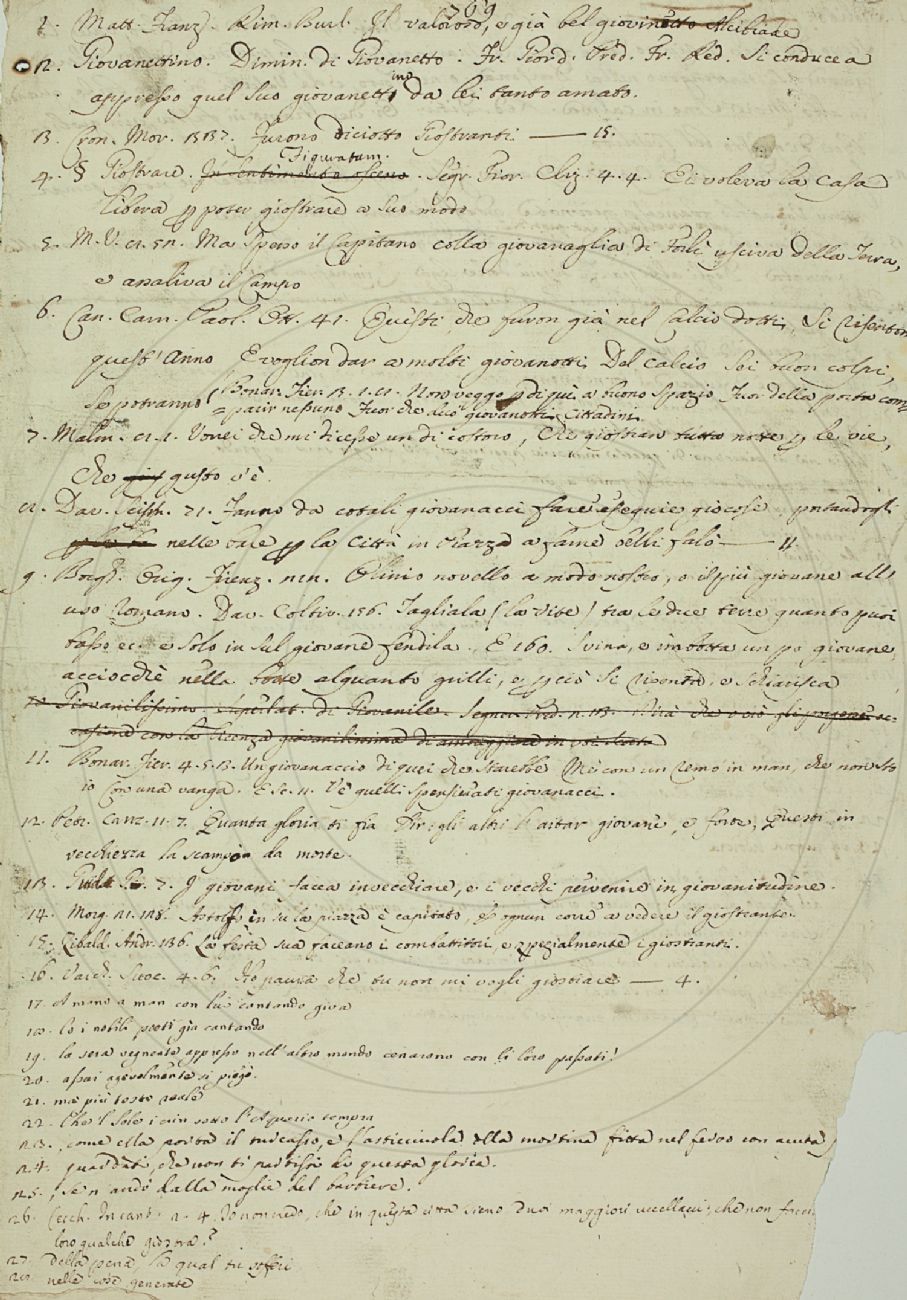 709
1. Matt. Franz. Rim. Burl. Il valoroso, e già bel giovinetto Alcibiade
2. Giovanettino. Dimin. di Giovanetto. Fr. Giord. Pred. Fr. Red. Si conducea
appresso quel suo giovanettino da lei tanto amato.
3. Cron. Mor. Furono diciotto Giostranti — 15.
Figuratam.
4. § Giostrare. In sentimento osceno. Segr. Fior. Cliz. 4. 4. Ei voleva la casa
libera p poter giostrare a suo modo
5. M. V. Ma spesso il Capitano colla giovanaglia di Forlì usciva della Terra,
e assaliva il Campo
6. Can. Carn. Paol. Ott. 41. Questi che furon già nel Calcio dotti, Si risenton
quest' anno E voglion dar a molti giovanotti Del calcio sei buon colpi,
se potranno (Bonar. Fier. Non veggo di qui a buono spazio Fuor della porta com=
=parir nessuno Fuor che alcⁱ giovanotti Cittadini
7. Malm. Vorrei che mi dicesse un di costoro, Che giostran tutta notte p le vie,
Che gusto v'è.
Dav. Scism. 71. Fanno da cotali giovanacci fare esequie giocose, portandogli
nelle bare p la Città in piazza a farne belli falò — 11
9. Borgh. Orig. Firenz. Plinio novello a modo nostro, o il più giovane all'
uso Romano. Dav. Coltiv. 156. Tagliala (la vite) tra le due terre quanto puoi
basso ec. e solo in sul giovane fendila. E 160. Svina, e imbotta un po giovane,
acciocchè nella botte alquanto grilli, e p ciò si risenta, e schiarisca
10 Giovanilissimo. Superlat. di Giovanile. Segner. Pred.
casione con la licenza giovanilissima di
11. Bonar. Fier. 4. 5. 13. Un giovanaccio di quei che starebbe Me' con un remo in man, che non sto
io con una vanga. E Sc. 11. V'è quelli spensierati giovanacci.
12. Petr. Canz. 11. 7. Quanta gloria ti fia Dir: gli altri l'aitar giovane, e forte; Questi in
vecchiezza la scampò da morte.
13. Guid. G. 7. I giovani facea invecchiare, e i vecchi pervenire in giovanitudine.
14. Morg. Astolfo in su la piazza è capitato, E ognun corre a vedere il giostrante.
15. Zibald. Andr. 136. La festa sua faccano i combattitori, e spezialmente i giostranti.
16. Varch. Suoc. 4. 6. Ho paura che tu non mi vogli giostrare — 4.
17. A mano a man con lui cantando giva
18. Co i nobili poeti gia cantando
19. la sera vegnente appresso nell'altro mondo cenarono con li loro passati!
20. assai agevolmente si piegò.
21. ma più tosto reale
22. Che'l Sole i crin sotto l'Aquario tempra
23. come ella porta il turcasso, e l'asticciuola della mortina fitta nel ferro con acuta,
24. guardati, che non ti partissi da questa gloria.
25. se n'andò dalla moglie del barbiere.
26. Cecch. Incant. 2. 4. Io non credo, che in questa città sieno duoi maggiori uccellacci; che non facci
loro qualche giostra?
27. della pena, la qual tu soffri
28. nelle cose generate